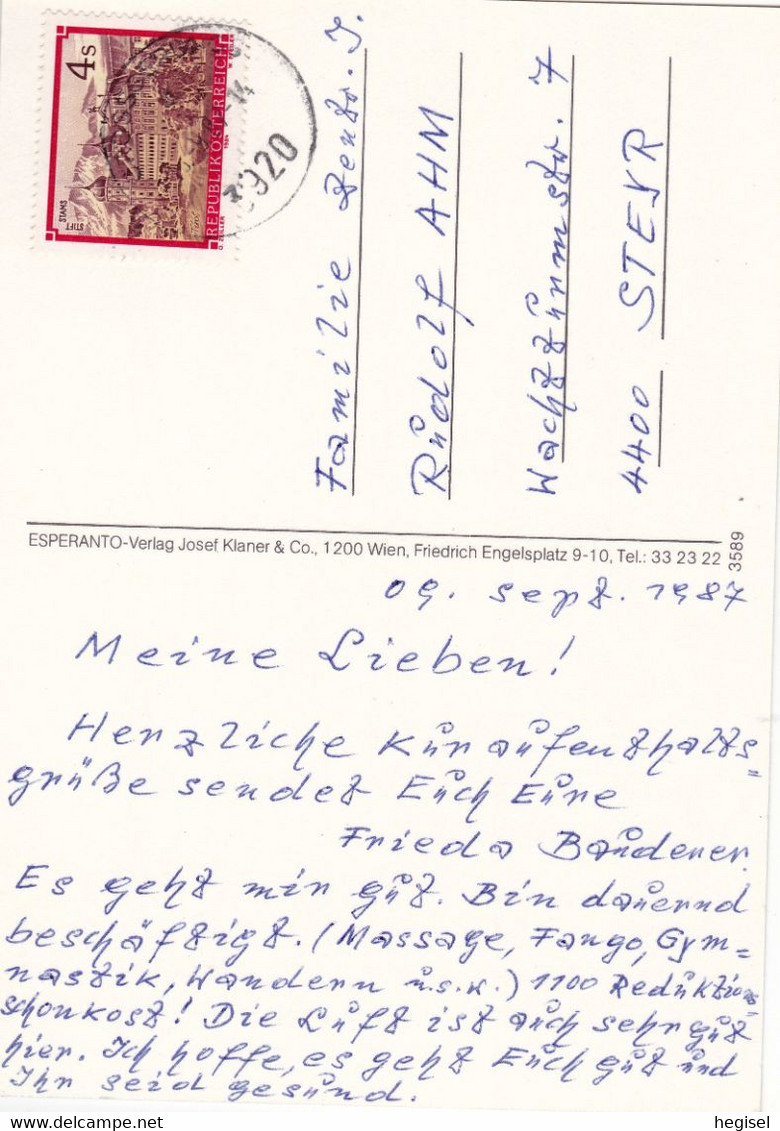 4 S
STIFT STAMS
REPUBLIK ÖSTERREICH
1984
3920
Familie
Rudolf AHM
Wachtturmstr. 7
4400 STEYR
ESPERANTO-Verlag Josef Klaner & Co., 1200 Wien, Friedrich Engelsplatz 9-10, Tel.: 33 23 22
3589
09. Sept. 1987
Meine Lieben!
Herzliche Kuraufenthalts=
grüße sendet Euch Eure
Frieda
Es geht mir gut. Bin dauernd
beschäftigt. (Massage, Fango, Gym=
nastik, Wandern u.s.w.) 1100 Reduktions=
schonkost! Die Luft ist auch sehr gut
hier. Ich hoffe, es geht Euch gut und
Ihr seid gesund.
hegisel